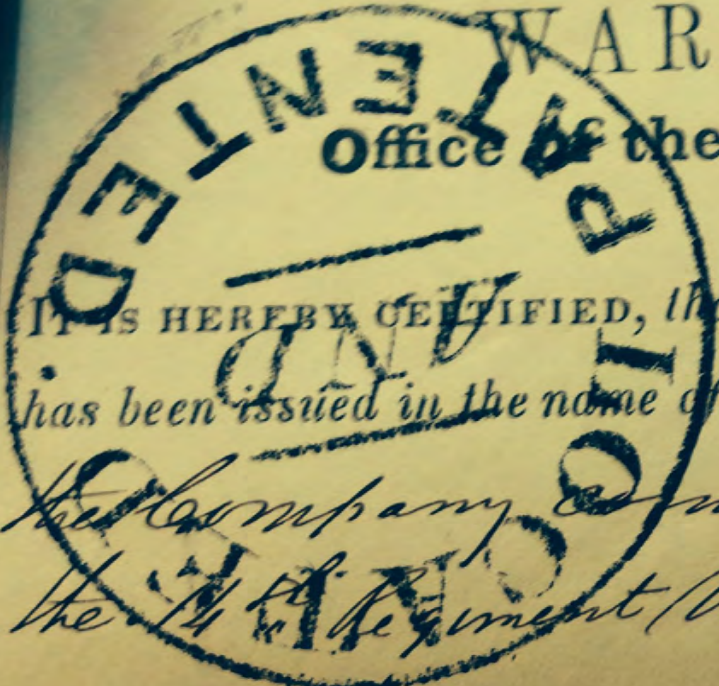 WAR
Office of the
IT IS HEREBY CERTIFIED, th
has been issued in the name o
the Company com
the 14th Regiment
LOCATED
AND
PATENTED